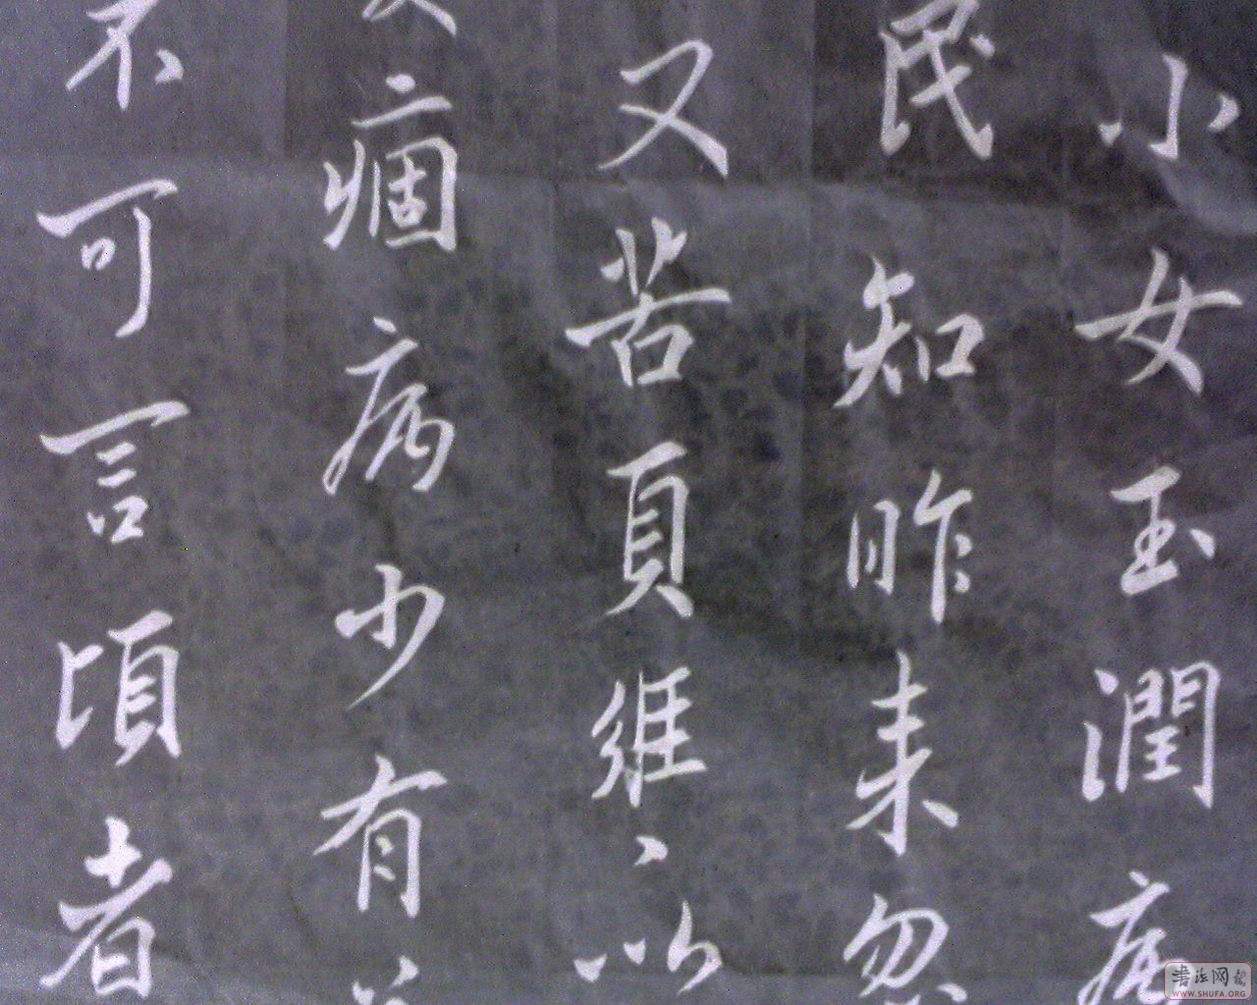 小女玉潤病
民知昨来忽
又苦頁維〻以
痼病少有
不可言頃者
书法网
WWW.SHUFA.ORG